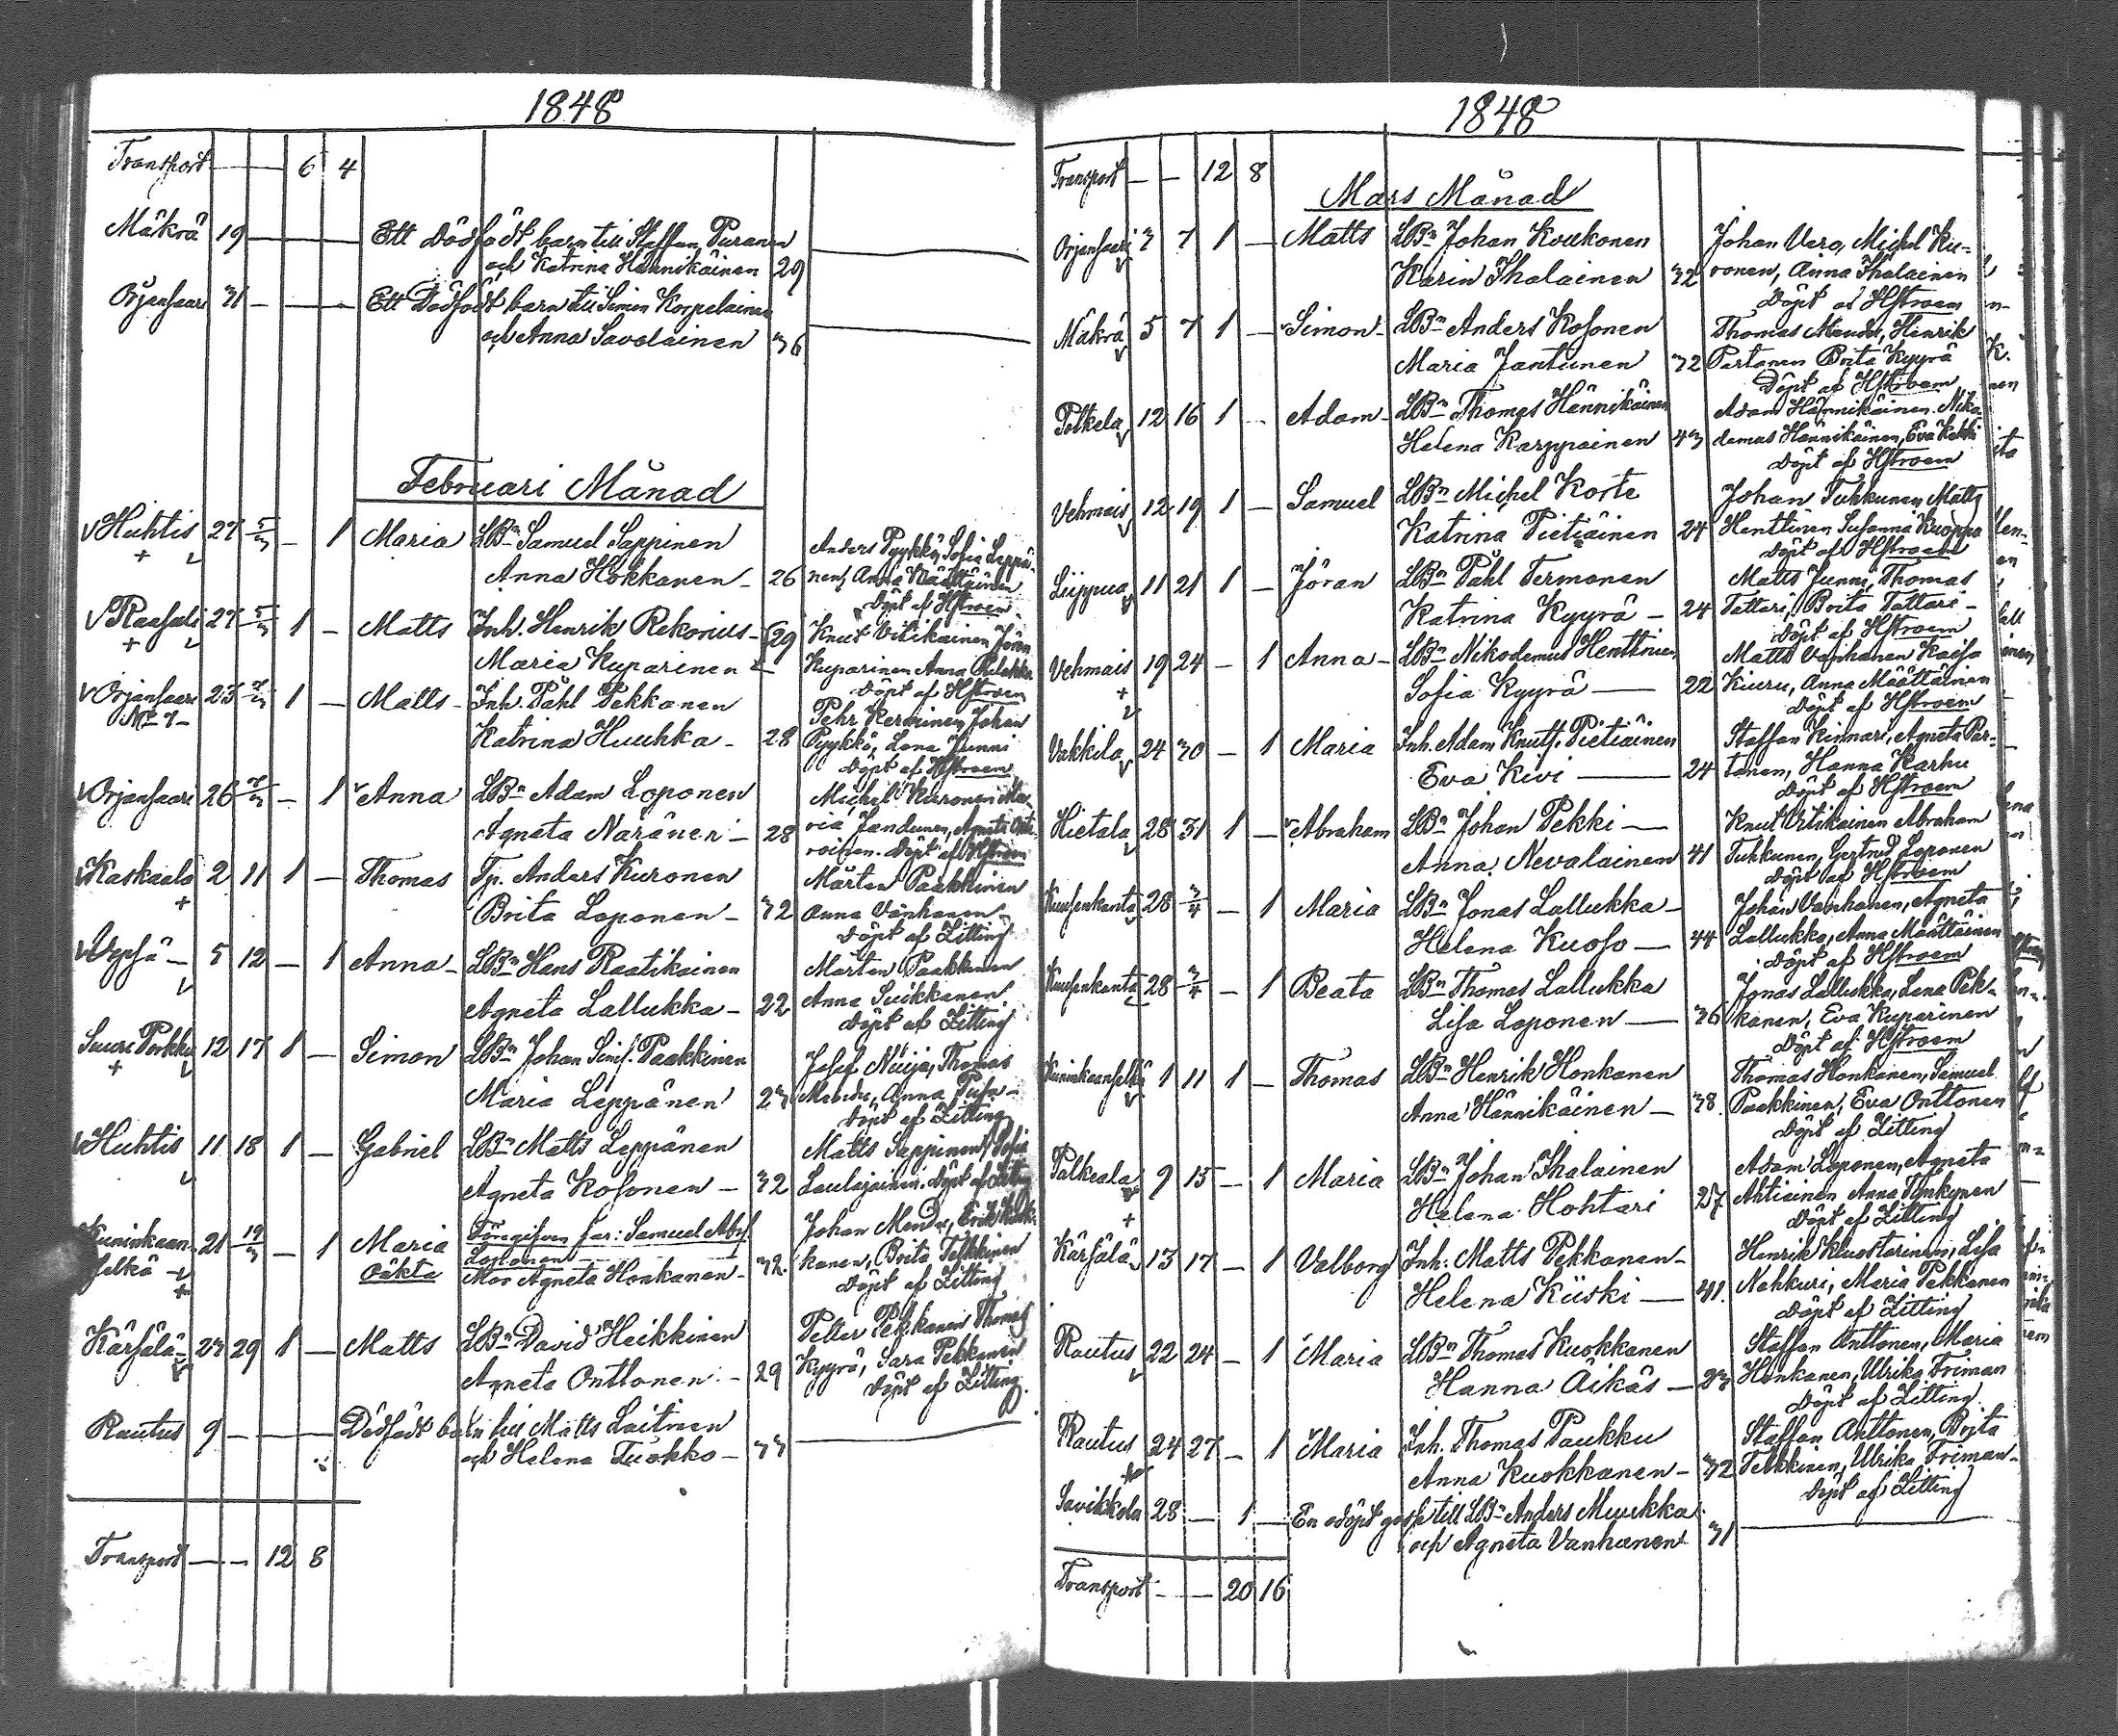 1848
Transport — — 6 4
Mäkrä 19 — Ett dödfödt barn till Staffan Puranen
och Katrina Hännikäinen 29
Orjansaari 31 — Ett Dödfödt barn till Simon Korpelainen
och Anna Savolainen 36
Februari Månad
Huhtis 27 5/3 — 1 Maria LBn Samuel Sappinen Anders Pyykkö, Sofia Leppä-
Anna Hökkanen 26 nen, Anna Määttäinen
Döpt af Hstroem
Raasuli 27 5/3 1 — Matts Inh. Henrik Rekonius 29 Knut Vitikainen Jöran
Maria Kuparinen Kuparinen Anna
Döpt af Hstroem
Orjansaari 23 1 — Matts Inh. Påhl Pekkanen Pehr Kerminen, Johan
Katrina Huuhka 28 Pyykkö, Lena Junni
Döpt af Hstroem
Orjansaari 26 — 1 Anna LBn Adam Loponen Michel Kuronen Ma-
Agneta Naränen 28 ria Jandunen, Agneta
roinen. Döpt af Hstroem
Kaskaala 2 11 1 — Thomas Tp. Anders Kuronen Mårten Paakkinen
Brita Loponen 32 Anna Vanhanen
Döpt af Zitting
Wepsä 5 12 — 1 Anna LBn Hans Raatikainen Mårten Paakkinen
Agneta Lallukka 22 Anna Suikkanen
Döpt af Zitting
Suuri Porkku 12 17 1 — Simon LBn Johan Simf. Paakkinen Josef Näija, Thomas
Maria Leppänen 23 Anna
Döpt af Zitting
Huhtis 11 18 1 — Gabriel LBn Matts Leppänen Matts Sappinen, Sofia
Agneta Kosonen 32 Laulajainen. Döpt af Zitting
Kuninkaan- 21 19/3 — 1 Maria Föregifven far: Samuel Abrf. Johan Erik
selkä Oäkta Loponen kanen, Brita Telkkinen
Mor Agneta Honkanen 32. Döpt af Zitting
Kärsälä 23 29 1 — Matts LBn David Heikkinen Petter Pekkanen Thomas
Agneta Onttonen 29 Kyyrö, Sara Pekkanen
Döpt af Zitting.
Rautus 9 — Dödfödt barn till Matts Laitinen
och Helena Tuokko 33
Transport — — 12 8
1848
Transport — — 12 8
Mars Månad
Orjansaari 3 7 1 — Matts LBn Johan Koukonen Johan Vero, Michel Ku-
Karin Ihalainen 32 ronen, Anna Ihalainen
Döpt af Hstroem
Mäkrä 5 7 1 — Simon LBn Anders Kosonen Thomas Henrik
Maria Jantunen 32 Partanen Brita Kyyrä
Döpt af Hstroem
Potkela 12 16 1 — Adam LBn Thomas Hännikäinen Adam Hännikäinen. Niko
Helena Karppainen 43 demus Hännikäinen, Eva Kekki
Döpt af Hstroem
Vehmais 12 19 1 — Samuel LBn Michel Korte Johan Tuhkunen, Matts
Katrina Pietiäinen 24 Henttinen Susanna Kuoppa
Döpt af Hstroem
Liippua 11 21 1 — Jöran LBn Påhl Termonen Matts Junni, Thomas
Katrina Kyyrä 24 Tattari, Brita Tattari
Döpt af Hstroem
Vehmais 19 24 — 1 Anna LBn Nikodemus Henttinen Matts Vanhanen Kaisa
Sofia Kyyrä 22 Kiuru, Anna Määttäinen
Döpt af Hstroem
Vakkila 24 30 — 1 Maria Inh. Adam Knutf. Pietiäinen Staffan Kinnari, Agneta Par-
Eva Kivi 24 tanen, Hanna Karhu
Döpt af Hstroem
Hietala 28 31 1 — Abraham LBn Johan Pekki Knut Vitikainen Abraham
Anna Nevalainen 41 Tuhkunen, Gertrud Loponen
Döpt af Hstroem
Kuusenkanta 28 3/4 — 1 Maria LBn Jonas Lallukka Johan Vanhanen, Agneta
Helena Kuoso 44 Lallukka, Anna Määttäinen
Döpt af Hstroem
Kuusenkanta 28 3/4 — 1 Beata LBn Thomas Lallukka Jonas Lallukka, Lena Pek-
Lisa Loponen 36 kanen, Eva Kuparinen
Döpt af Hstroem
Kuninkaanselkä 1 11 1 — Thomas LBn Henrik Honkanen Thomas Honkanen, Samuel
Anna Hännikäinen 38. Paakkinen, Eva Onttonen
Döpt af Zitting
Palkeala 9 15 — 1 Maria LBn Johan Ihalainen Adam Loponen, Agneta
Helena Hohtari 27 Ahtiainen Anna Tynkynen
Döpt af Zitting
Kärsälä 13 17 — 1 Valborg Inh. Matts Pekkanen Henrik Kluostarinen, Lisa
Helena Kiiski 41. Nahkuri, Maria Pekkanen
Döpt af Zitting
Rautus 22 24 — 1 Maria LBn Thomas Kuokkanen Staffan Anttonen, Maria
Hanna Äikäs 23 Honkanen, Ulrika Friman
Döpt af Zitting
Rautus 24 27 — 1 Maria Inh. Thomas Paukku Staffan Anttonen, Brita
Anna Kuokkanen 32 Telkkinen, Ulrika Friman
Döpt af Zitting
Savikkola 28 — 1 — En odöpt gosse till LBn Anders Muukka
och Agneta Vanhanen 31
Transport — — 20 16